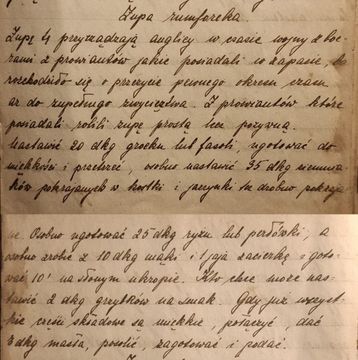 Zupa rumforska.
Zupę tą przyrządzają anglicy w czasie wojny z boe-
rami z prowiantów jakie posiadali w zapasie, bo
rozchodziło się o przeżycie pewnego okresu czasu
aż do zupełnego zwycięztwa. Z prowiantów które
posiadali robili zupę prostą lecz pożywną.
Nastawić 20 dkg grochu lub fasoli, ugotować do
miękkości i przetrzeć, osobno nastawić 35 dkg ziemnia-
ków pokrajanych w kostki i jarzynki tu drobno pokraja-
ne. Osobno ugotować 25 dkg ryżu lub perłówki, a
osobno zrobić z 10 dkg mąki i 1 jaja zacierkę i goto-
wać 10' na słonym ukropie. Kto chce może nas-
tawić 2 dkg grzybków na smak. Gdy już wszyst-
kie części składowe są miękkie, połączyć, dać
dkg masła, posolić, zagotować i podać.